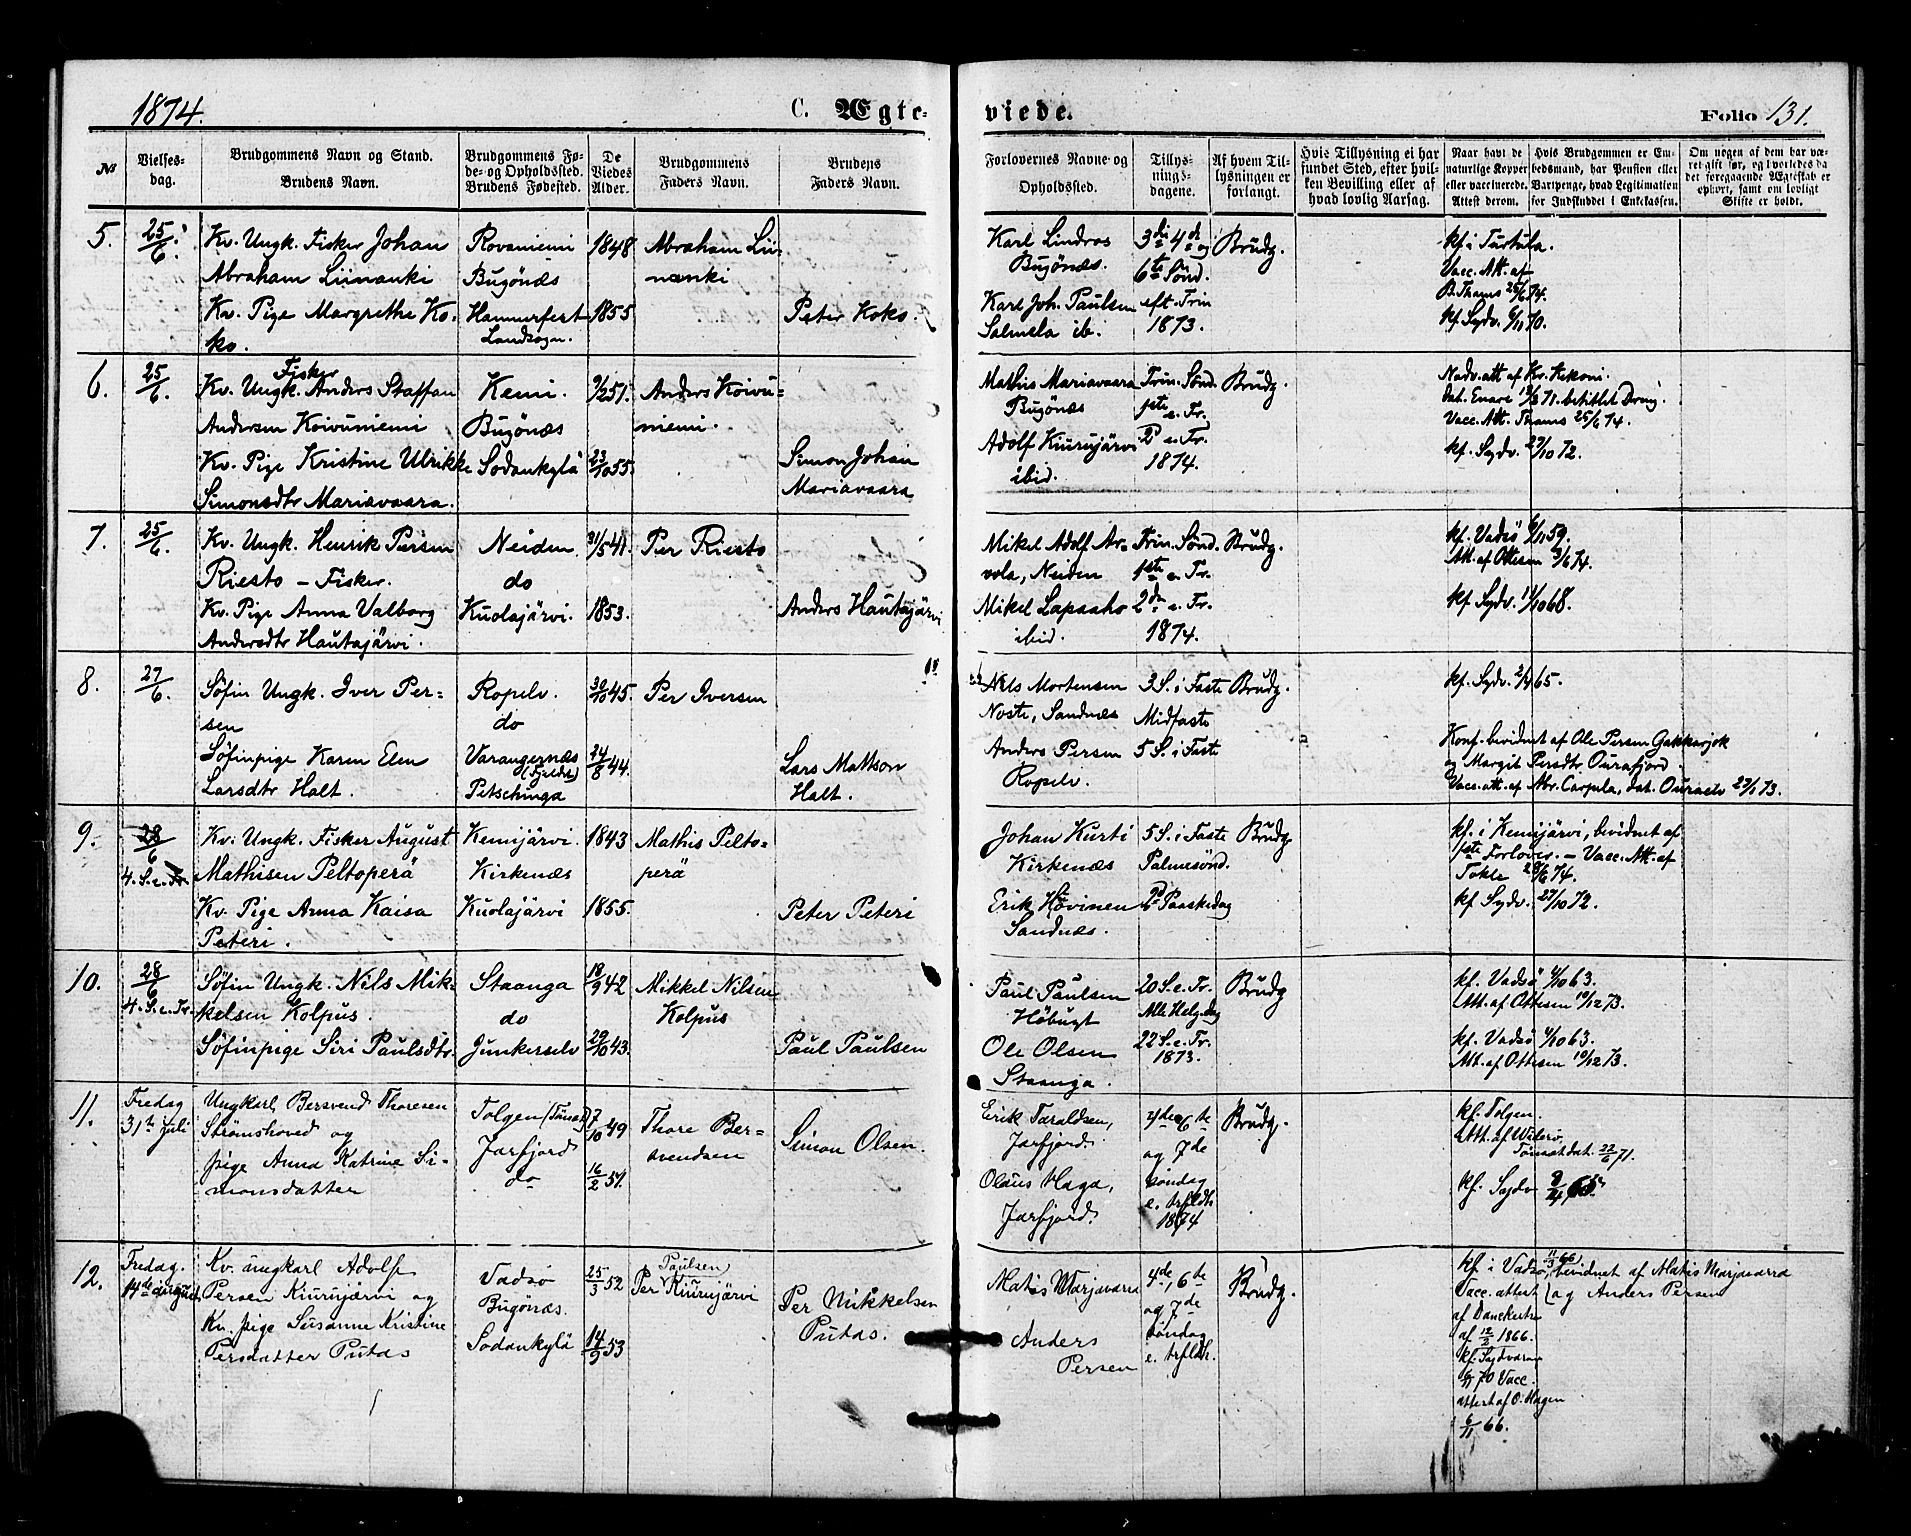 1874.
C. Ægte-
viede.
Folio 131.
№
Vielses-
dag.
Brudgommens Navn og Stand.
Brudens Navn.
Brudgommens Fø-
de- og Opholdssted.
Brudens Fødested.
De
Viedes
Alder.
Brudgommens
Faders Navn.
Brudens
Faders Navn.
Forlovernes Navne og
Opholdssted.
Tillys-
nings-
dagene.
Af hvem Til-
lysningen er
forlangt.
Hvis Tillysning ei har
fundet Sted, efter hvil-
ken Bevilling eller af
hvad lovlig Aarsag.
Naar havt de
naturlige Kopper
eller vaccinerede.
Attest derom.
Hvis Brudgommen er Em-
bedsmand, har Pension eller
Vartpenge, hvad Legitimation
for Indskuddet i Enkekassen.
Om nogen af dem har væ-
ret gift før, og hvorledes da
det foregaaende Ægteskab er
ophørt, samt om lovligt
Skifte er holdt.
5.
25/6.
Kv. Ungk. Fisker Johan
Abraham Liinanki
Kv. Pige Margrethe Ko-
ko.
Rovaniemi
Bugönæs
Hammerfest
Landsogn.
1848
1855
Abraham Lii-
nanki
Peter Koko.
Karl Lindros
Bugönæs.
Karl Joh. Paulsen
Salmela ib.
3die 4de og
6te Sönd.
eft. Trin
1873.
Brudg.
kf. i Turtula.
Vacc. Att. af
B. Thams 25/6 74.
kf. Sydv. 6/11 70.
6.
25/6.
Fisker
Kv. Ungk. Anders Staffan
Andersen Koivuniemi
Kv. Pige Kristine Ulrikke
Simonsdtr Mariavaara.
Kemi.
Bugönæs
Sodankylä
9/2 51.
23/10 55.
Anders Koivu-
niemi.
Simon Johan
Mariavaara
Mathis Mariavaara
Bugönæs
Adolf Kiurujärvi
ibid.
Trin. Sönd.
1ste e. Tr.
2d e. Tr.
1874.
Brudg.
Nadv. att af Kr. Kekoni.
dat. Enare 12/3 71. betitlet Dreng.
Vacc. Att. Thams 25/6 74.
kf. Sydv. 27/10 72.
7.
25/6.
Kv. Ungk. Henrik Persen
Riesto – Fisker.
Kv. Pige Anna Valborg
Andersdtr Hautajärvi.
Neiden
do
Kuolajärvi.
31/5 41.
1853.
Per Riesto
Anders Hautajärvi
Mikel Adolf Ar-
vola, Neiden
Mikel Lapsaho
ibid.
Trin. Sönd.
1ste e. Tr.
2de e. Tr
1874.
Brudg.
kf. Vadsö 6/11 59.
Att. af Ottesen 3/6 74.
kf. Sydv. 11/10 68.
8.
27/6.
Söfin Ungk. Iver Per-
sen
Söfinpige Karen Elen
Larsdtr Halt.
Ropelv.
do
Varangernæs
(Fjeldet)
Petschinga
30/10 45.
24/8 44.
Per Iversen
Lars Mattson
Halt.
Nils Mortensen
Noste, Sandnæs
Anders Persen
Ropelv.
3 S. i Faste
Midfaste
5 S. i Faste
Brudg.
kf. Sydv. 2/4 65.
Konf. bevidnet af Ole Persen Gakkarjok
og Margit Persdtr Ourafjord.
Vacc. att. af Abr. Carpula, dat. Ouraelv 23/1 73.
9.
28/6
4. S. e. Tr.
Kv. Ungk. Fisker August
Mathisen Peltoperä
Kv. Pige Anna Kaisa
Peteri.
Kemijärvi
Kirkenæs
Kuolajärvi
1843
1855.
Mathis Pelto-
perä
Peter Peteri
Johan Kurti
Kirkenæs
Erik Hovinen
Sandnæs.
5 S. i Faste
Palmesönd.
2d Paaskedag
Brudg.
kf. i Kemijärvi, bevidnet af
1ste Forlover. – Vacc. Att. af
Tokle 28/6 74.
kf Sydv. 27/10 72.
10.
28/6
4. S. e. Tr.
Söfin Ungk. Nils Mik-
kelsen Kolpus.
Söfinpige Siri Paulsdtr.
Staanga
do
Junkerselv
18/9 42
29/10 43.
Mikkel Nilsen
Kolpus
Paul Paulsen
Paul Paulsen
Höbugt
Ole Olsen
Staanga.
20 S. e. Tr.
Alle Helg. dag
22 S. e. Tr.
1873.
Brudg
kf. Vadsö 4/10 63.
Att. af Ottesen 10/12 73.
kf. Vadsö 4/10 63.
Att. af Ottesen 10/12 73.
11.
Fredag
31te Juli
Ungkarl Bersvend Thoresen
Strömshoved og
pige Anna Katrine Si-
monsdatter
Tolgen (Tönset)
Jarfjord
do
7/10 49
16/2 51.
Thore Ber-
svendsen
Simon Olsen.
Erik Taraldsen,
Jarfjord.
Olaus Haga,
Jarfjord.
4de 6te
og 7de
söndag
e. trfldh.
1874
Brudg.
kf. Tolgen.
Att. af Wideröe
Tönset dat. 22/6 71.
kf. Sydv
12.
Fredag.
14de august
Kv. ungkarl Adolf
Persen Kiurujærvi og
Kv. pige Susanne Kristine
Persdatter Putas
Vadsö
Bugönæs.
Sodankylä
25/3 52
14/9 53
Paulsen
Per Kiurujärvi
Per Mikkelsen
Putas.
Matis Marjavarra
Anders
Persen
4de, 6te
og 7de
söndag
e. trfldh.
Brudg.
kf. i Vadsö 11/3 66, bevidnet af Matis Marjavarra
og Anders Persen
Vacc. attest
af Danckertsen
af 12/2 1866.
kf. Sydvaran
6/11 70 Vacc.
attest af O. Hagen
6/11 66.